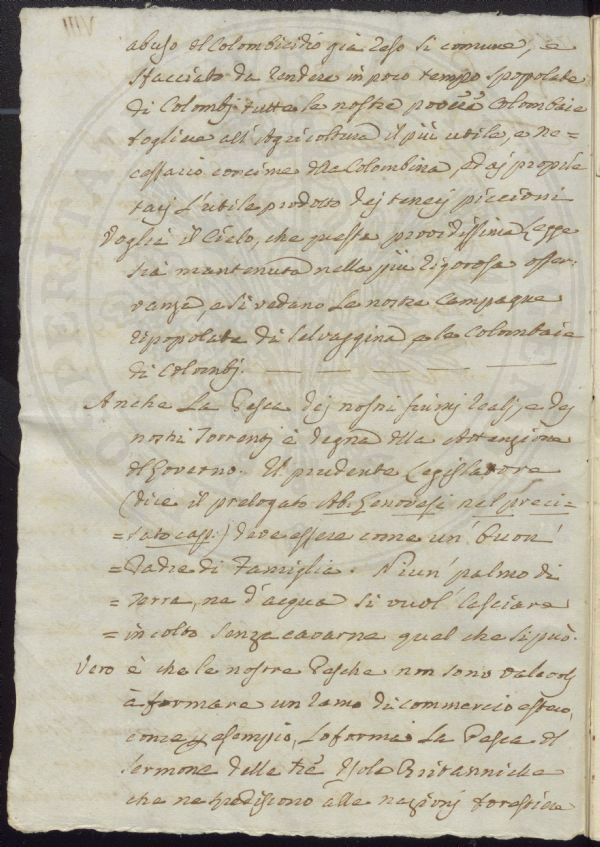 VIII
abuso del Colombicidio già reso sì comune, e
sfacciato da rendere in poco tempo spopolate
di Colombj tutte le nostre Colombaie
togliere all'Agricoltura il più utile, e ne=
cessario concime della Colombina, ed aj proprie
tarj l'utile prodotto dej tenerj piccioni
Voglia il Cielo, che questa providissima Legge
sia mantenuta nella più rigorosa osser-
vanza, e si vedano le nostre Campagne
ripopolate di selvaggina e le Colombaie
di Colombj.
Anche La Pesca dej nostri fiumj Realj, e dej
nostri Torrentj è degna della Attenzione
del Governo. Il prudente Legislatore
(dice il prelogato Ab. Genovesi nel preci=
=tato cap.) deve essere come un' buon'
=Padre di Famiglia. Niun' palmo di
=Terra, ne d'acqua si vuol' lasciare
=incolto senza cavarne quel che si può.
Vero è che le nostre Pesche non sono valevolj
à formare un ramo di commercio estero,
come p esempio, lo forma La Pesca del
Sermone delle tré Isole Britanniche
che ne spediscono alle nazionj forestiere